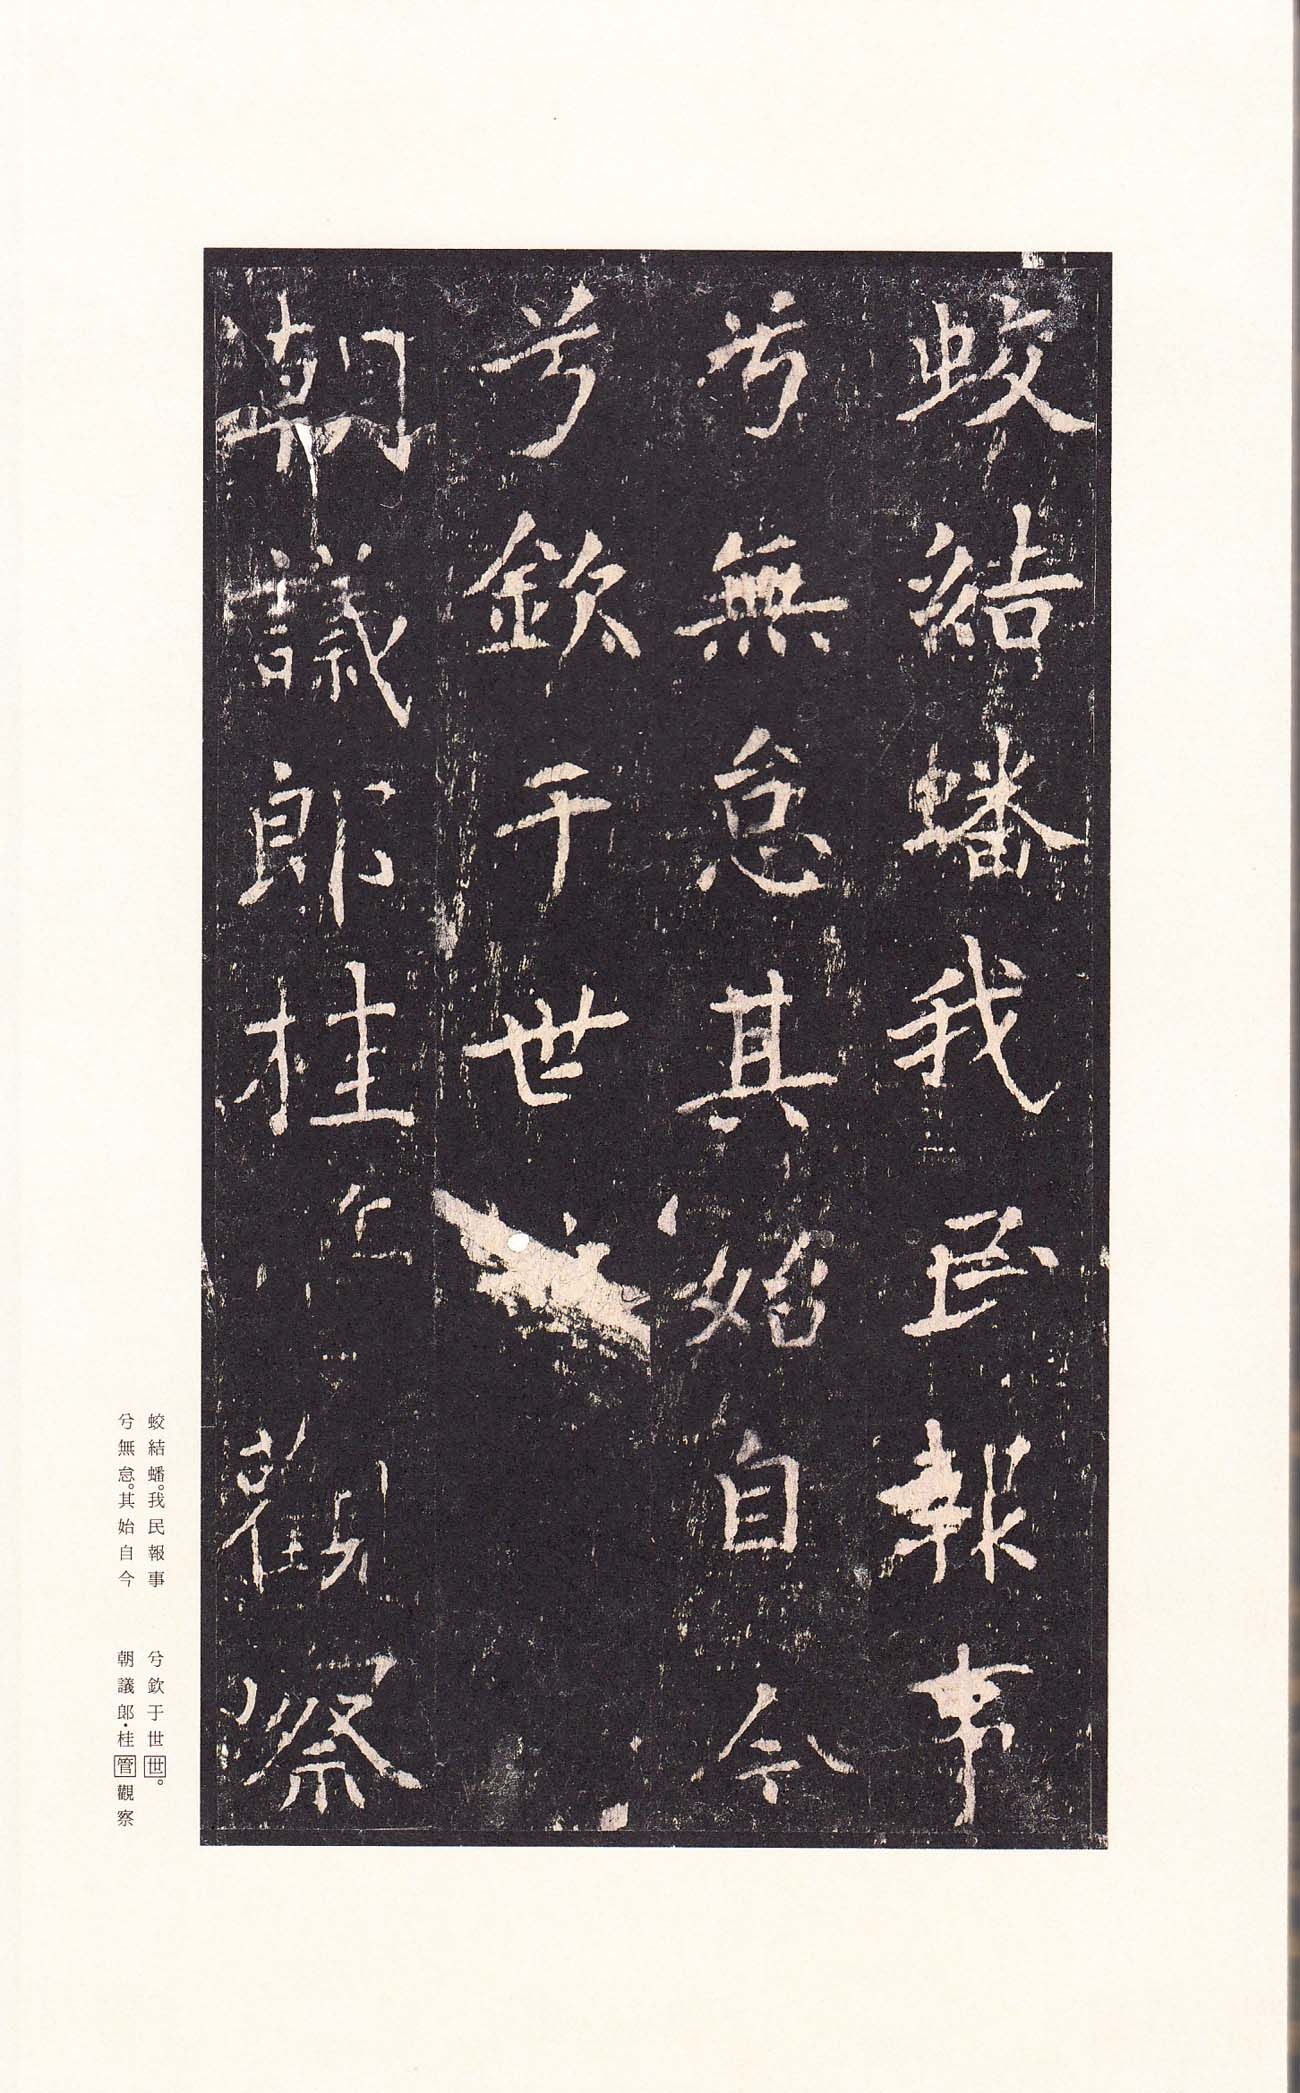 蛟結蟠我民報事
兮無怠其始自今
兮欽于世
朝議郎桂觀察
蛟結蟠。我民報事
兮無怠。其始自今
兮欽于世世。
朝議郎・桂管觀察